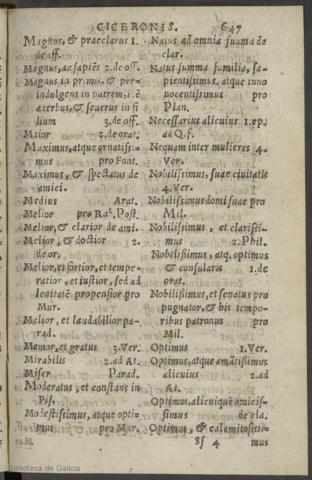 CICERONIS. 647
Magnus, & præclarus 1.
de off.
Magnus, ac sapiēs 2. de off.
Magnus in primis, & per-
indulgens in patrem, iē
acerbus, & seuerus in fi
lium 3. de off.
Maior 2. de orat.
Maximus, atque ornatissi-
mus pro Font.
Maximus, & spectatus de
amici.
Medius Arat.
Melior pro Rab. Post.
Melior, & clarior de ami.
Melior, & doctior 2.
de or.
Melior, et fortior, et tempe
ratior, et iustior, sed ad
lenitatē propensior pro
Mur.
Melior, et laudabilior pa-
rad.
Memor, et gratus 3. Ver.
Mirabilis 2. ad At.
Miser Parad.
Moderatus, et constans in
Pis.
Modestissimus, atque opti-
mus pro Mur.
Natus ad omnia summa de
clar.
Natus summa familia, sa-
pientissimus, atque inno
nocentissimus pro
Plan.
Necessarius alicuius 1. ep.
ad Q. f.
Nequam inter mulieres 4.
Ver.
Nobilissimus, suæ ciuitatis
4. Ver.
Nobilissimus domi suæ pro
Mil.
Nobilissimus, et clarissi-
mus 2. Phil.
Nobilissimus, atq, optimus
& consularis 1. de
orat.
Nobilissimus, et senatus pro
pugnator, & his tempo-
ribus patronus pro
Mil.
Optimus 1. Ver.
Optimus, atque amātissimus
alicuius 2. ad
At.
Optimus, alicuique amicis-
simus de cla.
Optimus, & calamitosissi-
Sſ 4 mus
Biblioteca de Galicia